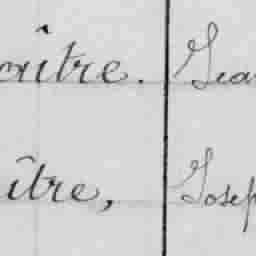 oître. Jea
ître, Josep